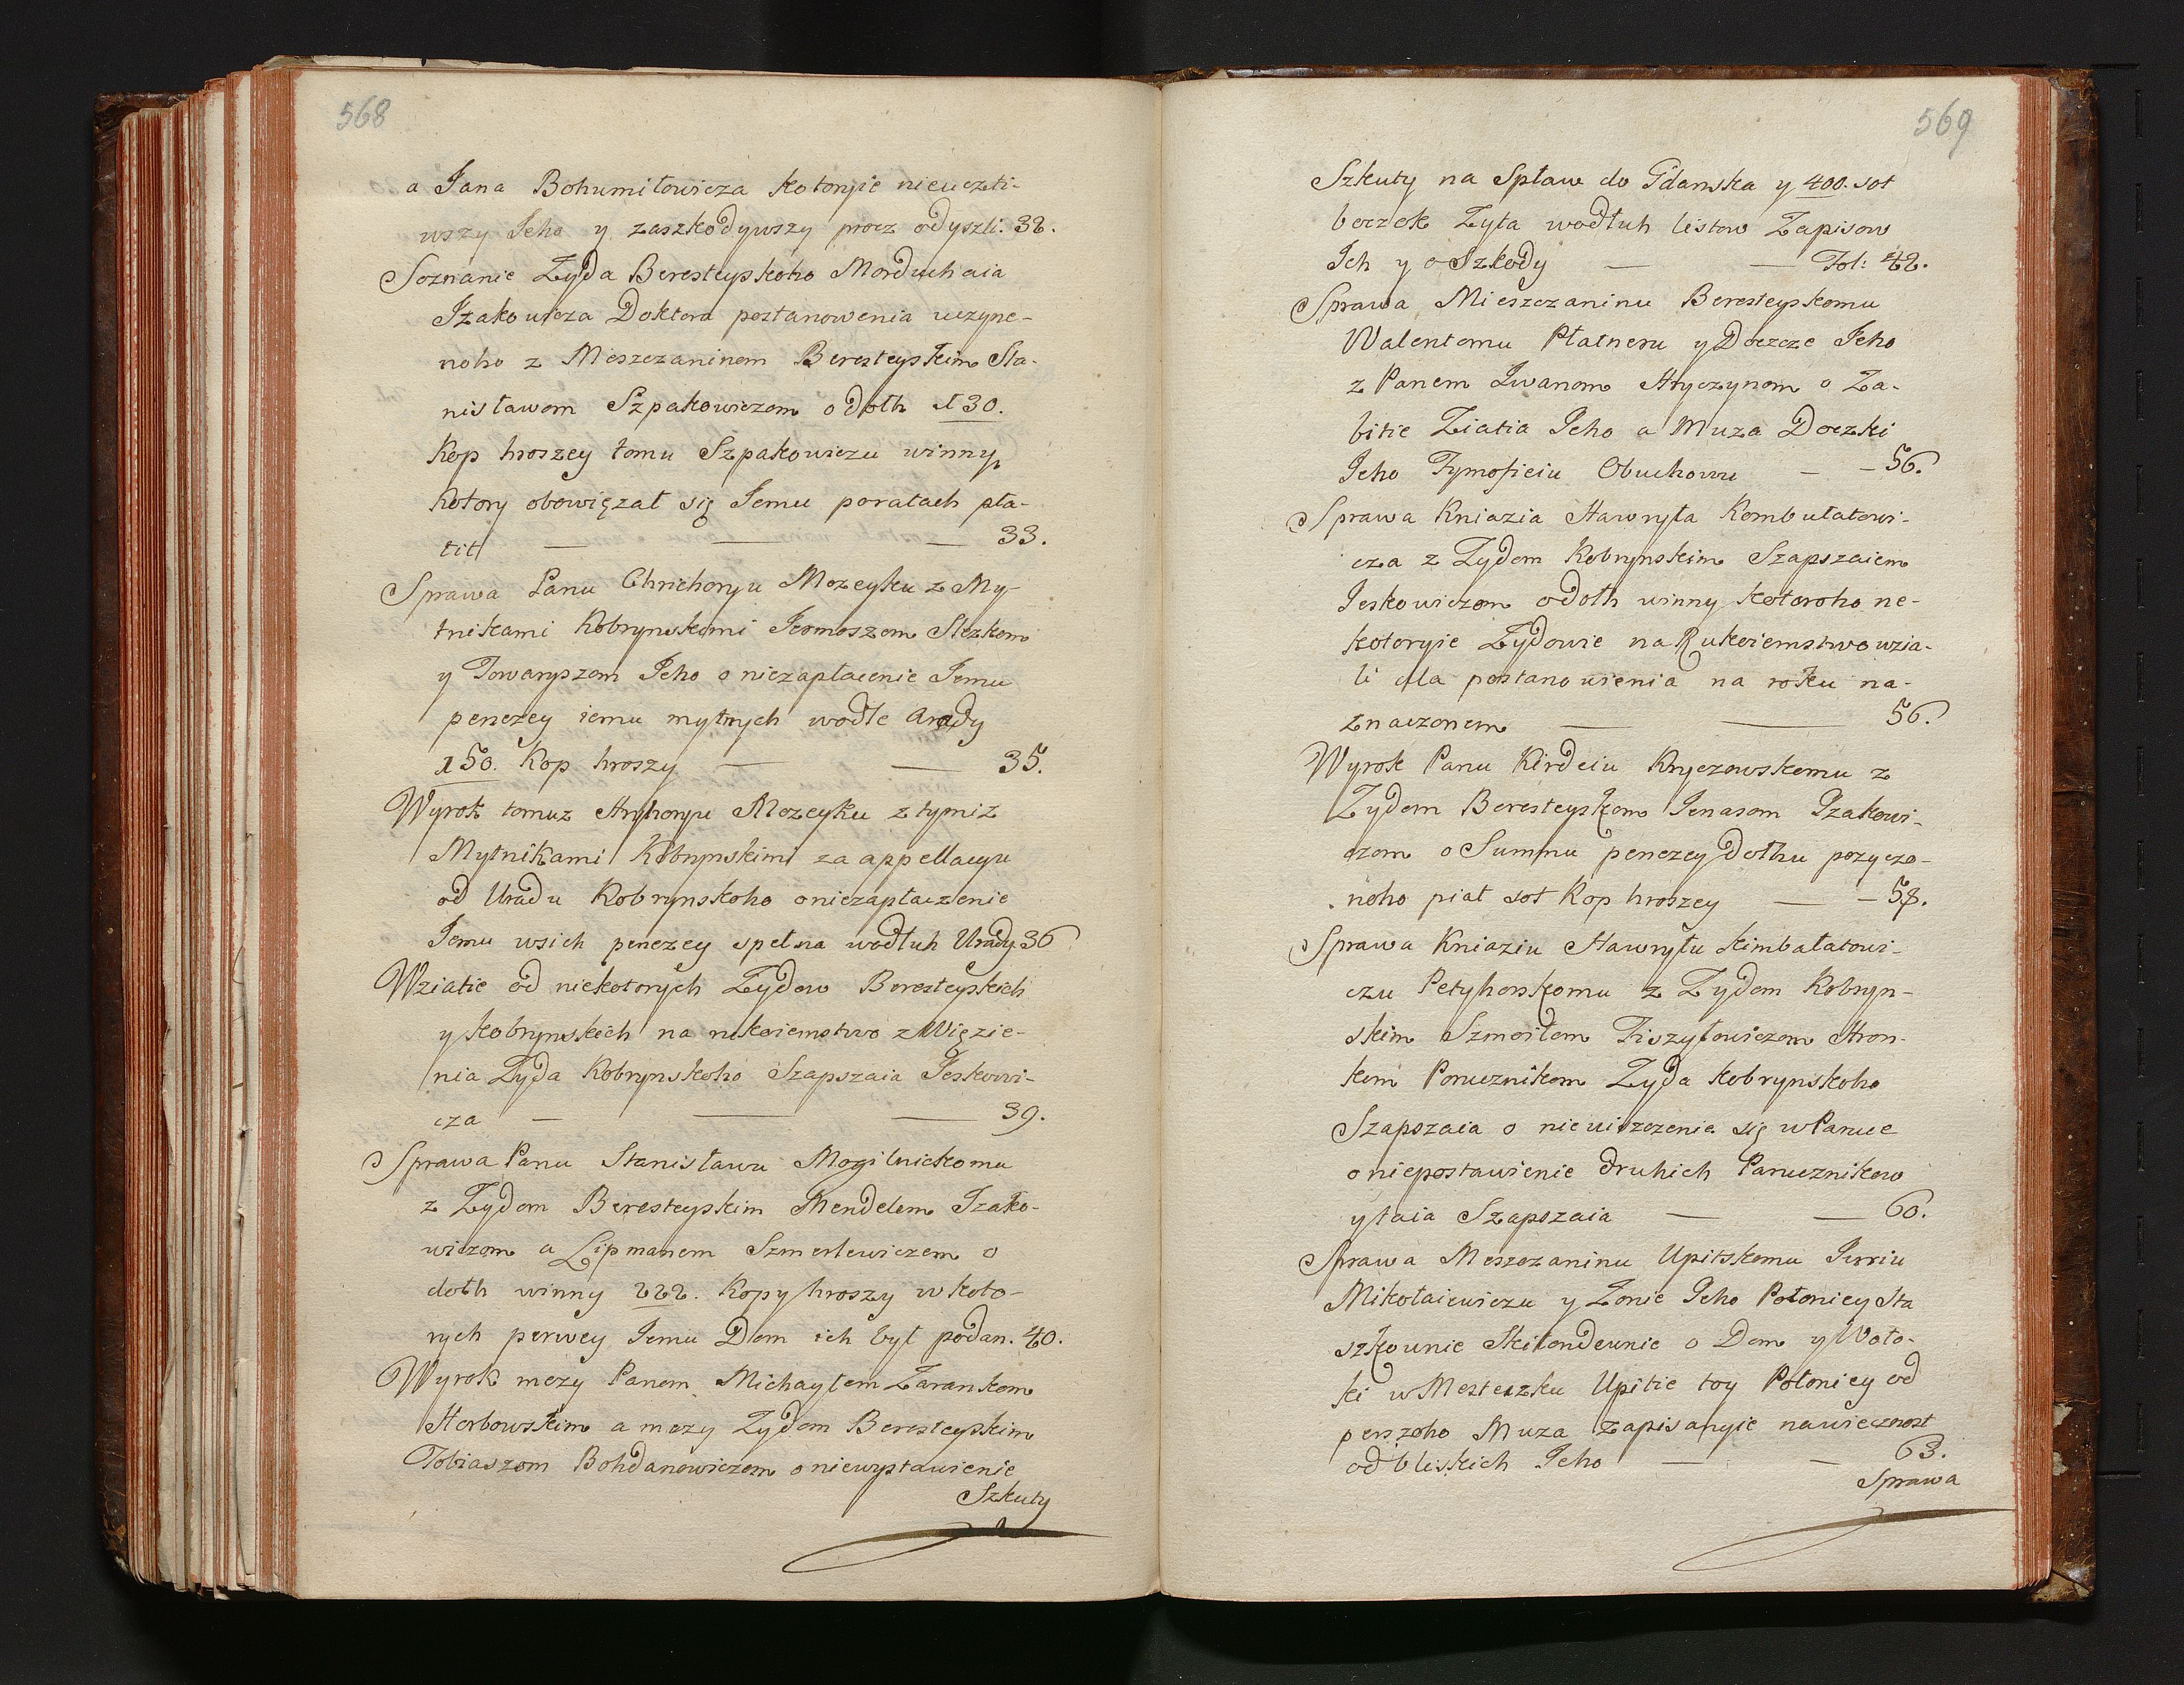 568
a Jana Bohumiłowicza kotoryie nieuczti-
wszy Jeho y zaszkodywszy procz odyszli. 32.
Soznanie Zyda Beresteyskoho Morduchaia
Izakowicza Doktora postanowenia uczyne-
noho z Meszczaninem Beresteyskim Sta-
nisławom Szpakowiczom o dołh 130.
Kop hroszey tomu Szpakowiczu winny,
kotory obowięzał się Jemu poratach pła-
tit — — — 33.
Sprawa Panu Chrichoryu Mozeyku z My-
tnikami Kobrynskimi Jermoszom Slezkom
y Towaryszom Jeho o niezapłacenie Jemu
penezey iemu mytnych wodle Arady
150. Kop hroszy — — 35.
Wyrok tomuz Hryhoryu Mozeyku z tymiz
Mytnikami Kobrynskimi za appellacyu
od Uradu Kobrynskoho o niezapłaczenie
Jemu wsich penezey spełna wodłuh Urady 36
Wziatie od niekotorych Zydow Beresteyskich
y Kobrynskich na rukoiemstwo z Więzie-
nia Zyda Kobrynskoho Szapszaia Jeskowi-
cza — — — 39.
Sprawa Panu Stanisławu Mogilnickomu
z Zydom Beresteyskim Mendelem Izako-
wiczom a Lipmanem Szmerlewiczem o
dołh winny 222. Kopy hroszy w koto-
rych perwey Jemu Dom ich był podan. 40.
Wyrok mezy Panem Michayłem Zarankom
Horbowskim a mezy Zydom Beresteyskim
Tobiaszom Bohdanowiczom o niewystawienie
Szkuty
569
Szkuty na Spław do Gdanska y 400. sot
boczek Zyta wodłuh listow Zapisow
Ich y o Szkody — — Fol: 42.
Sprawa Mieszczaninu Beresteyskomu
Walentomu Płatneru y Doczce Jeho
z Panem Iwanom Hryczynom o Za-
bitie Ziatia Jeho a Muza Doczki
Jeho Tymofieiu Obuchowu — — 56.
Sprawa Kniazia Hawryła Kombułatowi-
cza z Zydom Kobrynskim Szapszaiem
Jeskowiczom o dołh winny kotoroho ne-
kotoryie Zydowie na Rukoiemstwo wzia-
li dla postanowienia na roku na-
znaczonem — — 56.
Wyrok Panu Kirdeiu Kryczowskomu z
Zydom Beresteyskom Jonasom Izakowi-
czom o Summu penezey dołhu pozyczo-
noho piat sot Kop hroszey — — 58.
Sprawa Kniaziu Hawryłu Kimbałatowi-
czu Petyhorskomu z Zydom Kobryn-
skim Szmoiłom Fiszyłowiczom Hron-
kom Porucznikom Zyda Kobrynskoho
Szapszaia o nieuiszczenie się w Paruce
o niepostawienie druhich Parucznikow
y taia Szapszaia — — 60.
Sprawa Meszczaninu Upitskomu Juriu
Mikołaiewiczu y Zonie Jeho Połoniey Sta
szkownie Skilondewnie o Dom y Woło-
ki w Mesteczku Upitie toy Połoniey od
perszoho Muza zapisanyie nawiecznost
od bliskich Jeho — — 63.
Sprawa